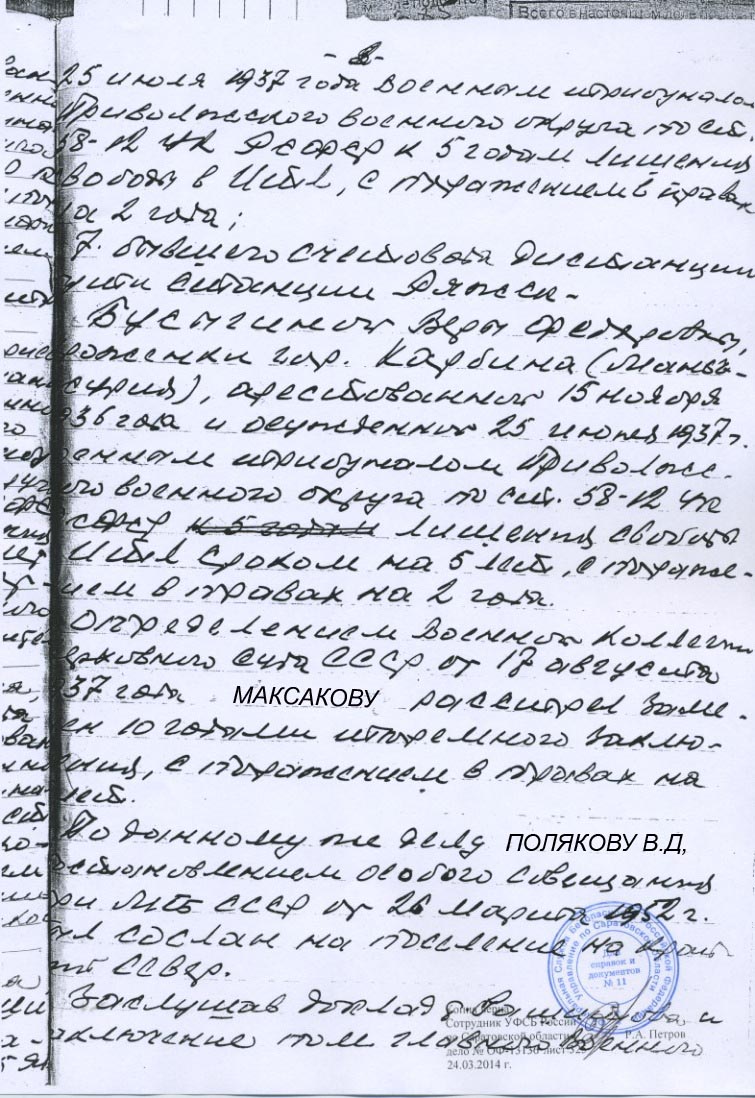 Всего в настоящ
25 июля 1937 года военным трибуналом
Приволжского военного округа по ст.
58-12 УК РСФСР к 5 годам лишения
свободы в ИТЛ, с поражением в правах
на 2 года;
7. бывшего счетовода дистанции
пути станции Ряжск-
Бусыгиной Веры Федоровны,
гор. Харбина (Мань-
), арестованной 15 ноября
1936 года и осужденной 25 июля 1937 г.
военным трибуналом Приволжс-
кого военного округа по ст. 58-12 УК
РСФСР к 5 годам лишения свободы
ИТЛ сроком на 5 лет, с пораже-
нием в правах на 2 года.
Определением Военной Коллегии
Верховного Суда СССР от 17 августа
1937 года МАКСАКОВУ расстрел заме-
нен 10 годами тюремного заклю-
чения, с поражением в правах на
лет.
По данному же делу ПОЛЯКОВУ В.Д,
постановлением особого совещания
при МГБ СССР от 26 марта 1952 г.
был сослан на поселение на
СССР.
Заслушав доклад и
заключение пом. главного военного
Для
справок и
документов
№ 11
Копия верна
Сотрудник УФСБ России
по Саратовской области Р.А. Петров
дело № ОФ-13150 лист
24.03.2014 г.